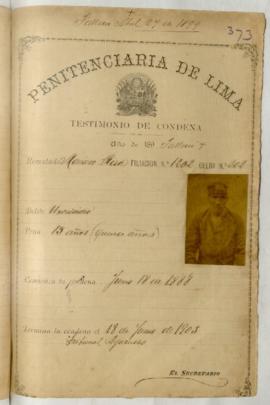 Falleció Abril 27 de 1899
373
PENITENCIARIA DE LIMA
TESTIMONIO DE CONDENA
Año de 189 Falleció
Rematado FILIACION N.º 1202 CELDA N.º
Delito Homicidio
Pena 15 años (quince años)
Comienza la pena Junio 18 de 1888
Termina la condena el 18 de Junio de 1903
Tribunal
EL SECRETARIO